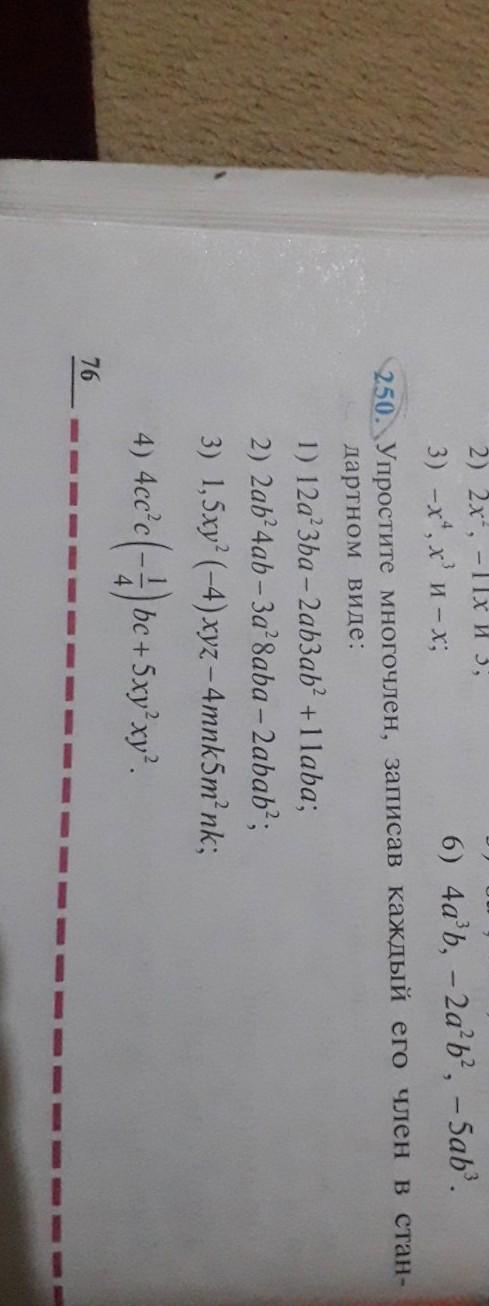 2) 2x², −11x и 3;
3) −x⁴, x³ и −x;
6) 4a³b, −2a²b², −5ab³.
250. Упростите многочлен, записав каждый его член в стан-
дартном виде:
1) 12a²3ba − 2ab3ab² + 11aba;
2) 2ab²4ab − 3a²8aba − 2abab²;
3) 1,5xy²(−4)xyz − 4mnk5m²nk;
4) 4cc²c(−1/4)bc + 5xy²xy².
76